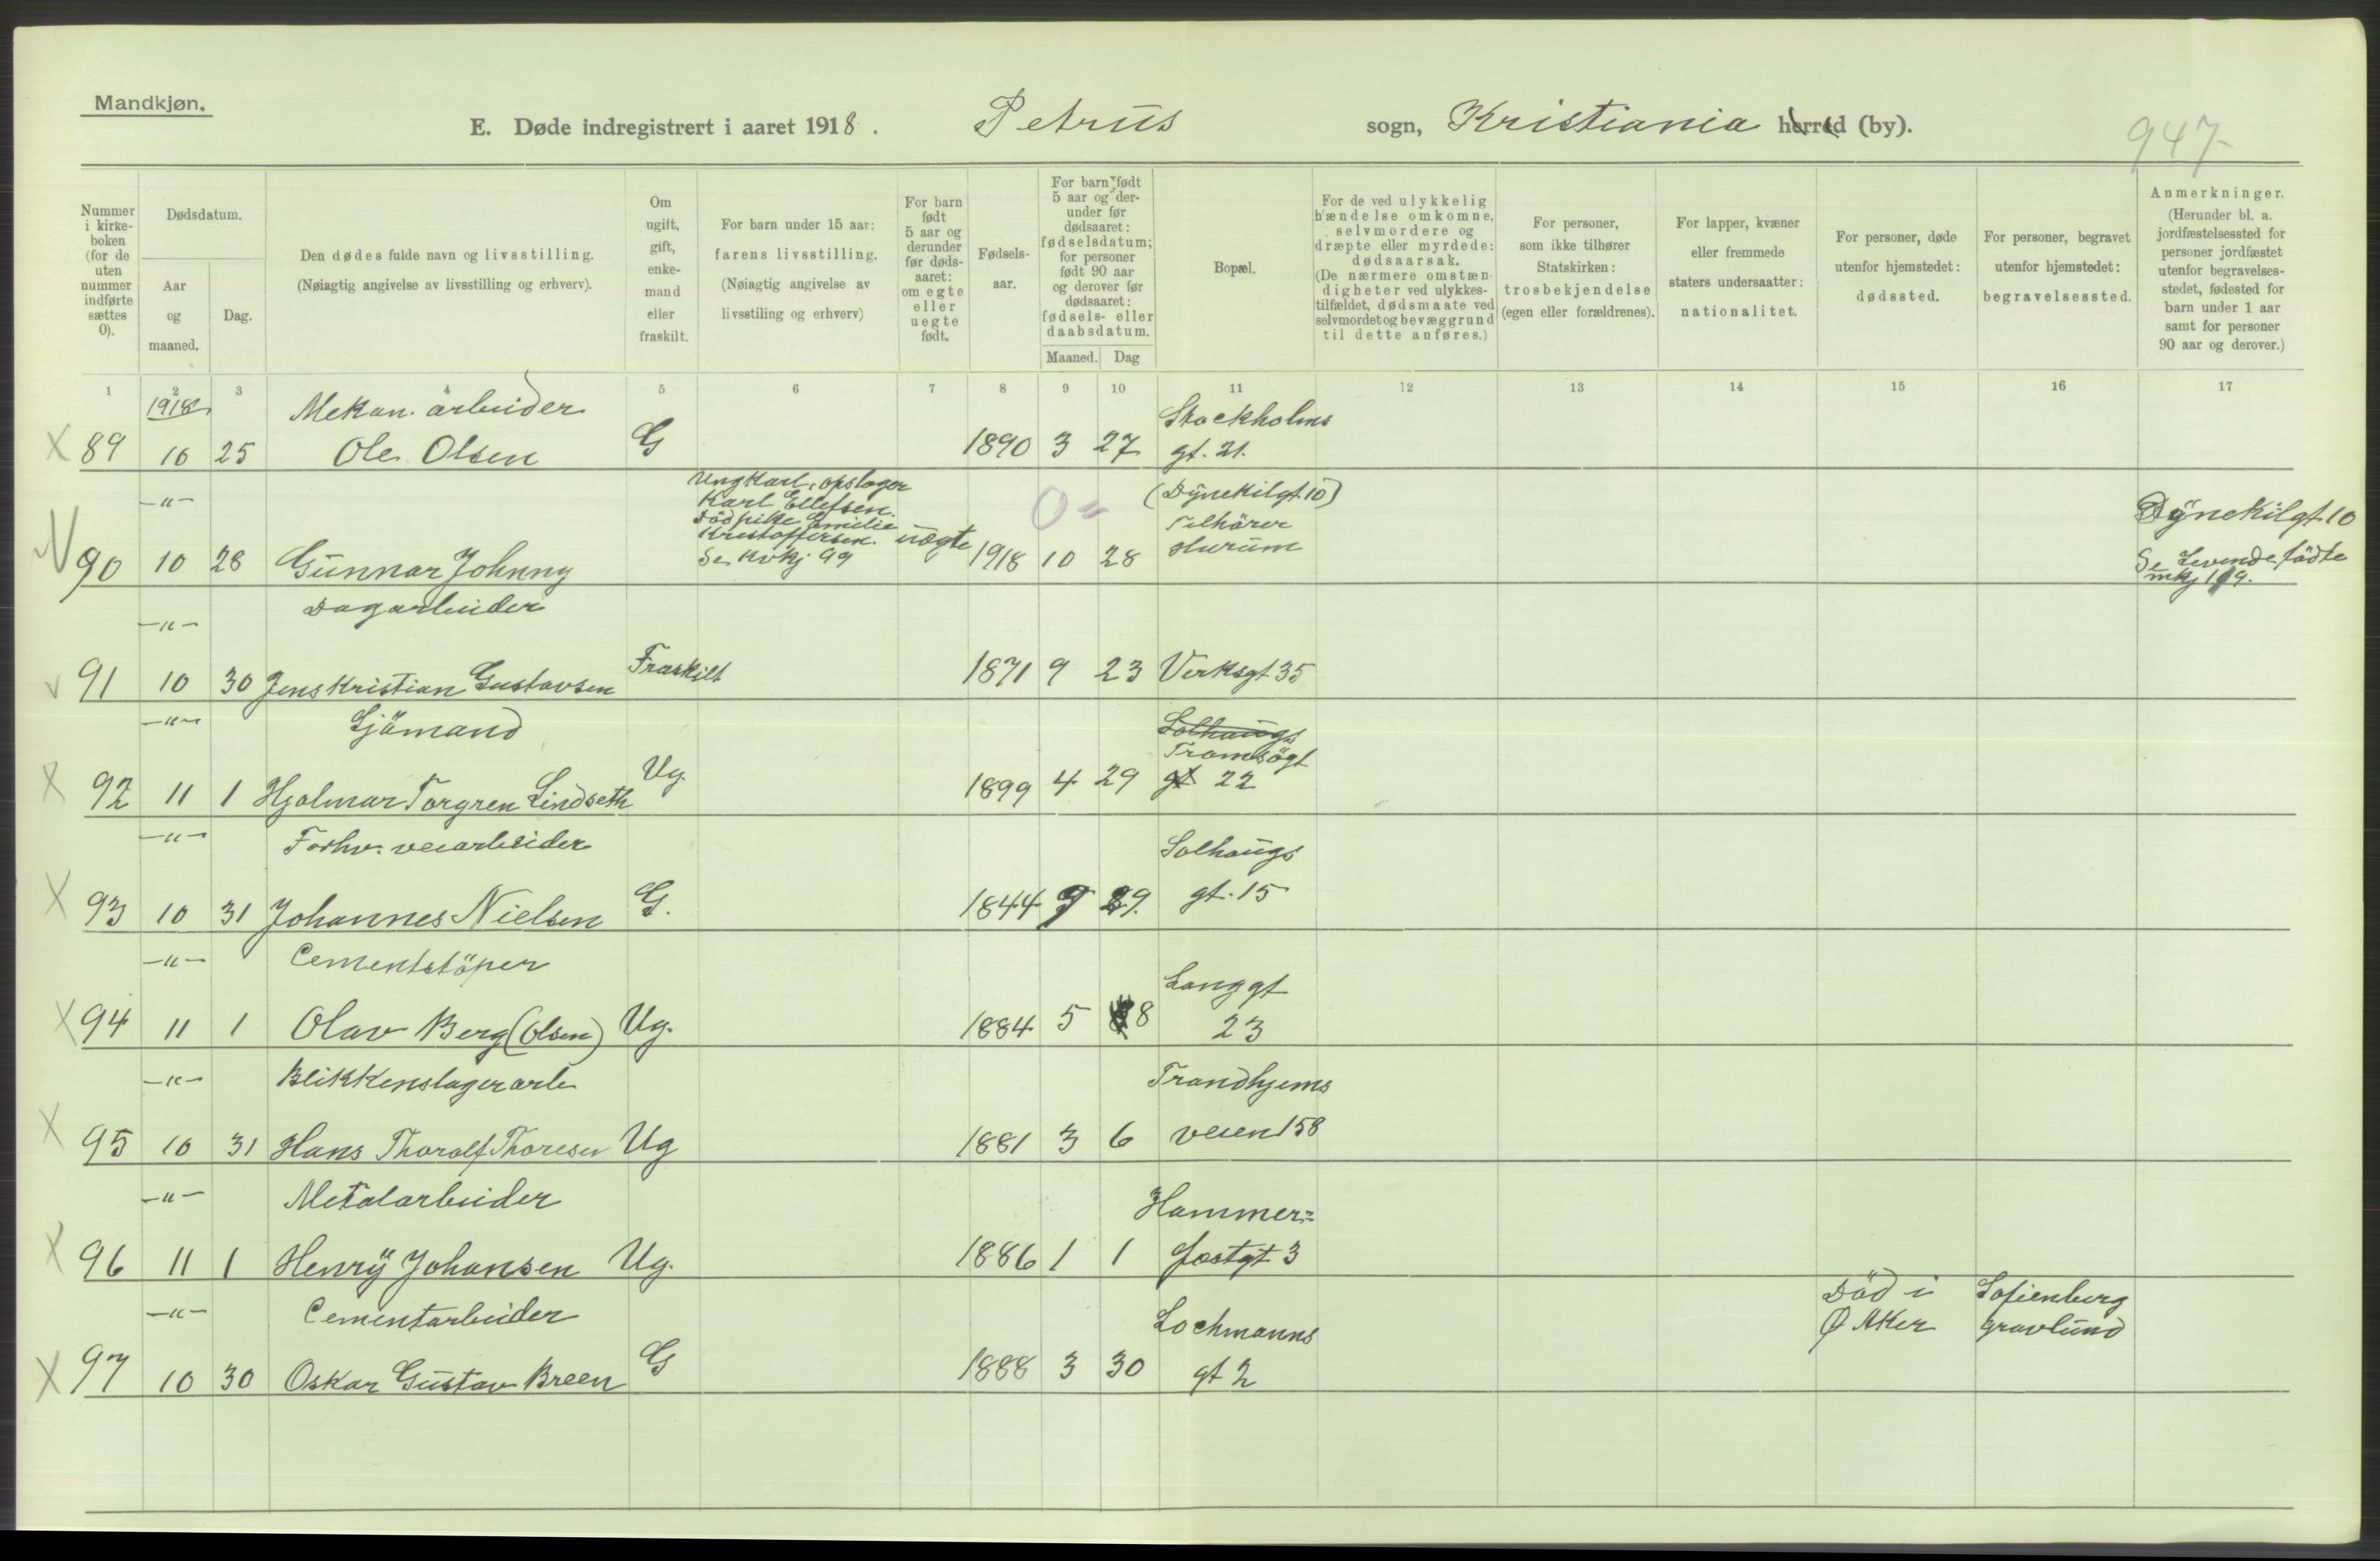 Mandkjøn.
E. Døde indregistrert i aaret 1918. Petrus sogn, Kristiania herred (by).
947
Nummer i kirke-boken (for de uten nummer indførte sættes 0).
Dødsdatum.
Aar og maaned.
Dag.
Den dødes fulde navn og livsstilling.
(Nøiagtig angivelse av livsstilling og erhverv).
Om ugift, gift, enke-mand eller fraskilt.
For barn under 15 aar: farens livsstilling.
(Nøiagtig angivelse av livsstiling og erhverv)
For barn født 5 aar og derunder før døds-aaret: om egte eller uegte født.
Fødsels-aar.
For barn født 5 aar og der-under før dødsaaret: fødselsdatum; for personer født 90 aar og derover før dødsaaret: fødsels- eller daabsdatum.
Maaned. Dag
Bopæl.
For de ved ulykkelig hændelse omkomne, selvmordere og dræpte eller myrdede: dødsaarsak.
(De nærmere omstæn-digheter ved ulykkes-tilfældet, dødsmaate ved selvmordet og bevæggrund til dette anføres.)
For personer, som ikke tilhører Statskirken: trosbekjendelse (egen eller forældrenes).
For lapper, kvæner eller fremmede staters undersaatter: nationalitet.
For personer, døde utenfor hjemstedet: dødssted.
For personer, begravet utenfor hjemstedet: begravelsessted.
Anmerkninger.
(Herunder bl. a. jordfæstelsessted for personer jordfæstet utenfor begravelses-stedet, fødested for barn under 1 aar samt for personer 90 aar og derover.)
1 2 3 4 5 6 7 8 9 10 11 12 13 14 15 16 17
1918 Mekan. arbeider Stockholms
X 89 10 25 Ole Olsen G 1890 3 27 gt. 21.
—"— Ungkarl, opslager (Dynekilgt 10)
Karl Ellefsen. Tilhører Dynekilgt 10
Pike Emilie
Kristoffersen. uegte Hurum Se Levende fødte
90 10 28 Gunnar Johnny Se Kvkj 99 1918 10 28 mkj 119.
—"— Dagarbeider
v 91 10 30 Jens Kristian Gustavsen Fraskilt 1871 9 23 Verksgt 35
—"— Sjömand Solhaugs
Tromsögt
X 92 11 1 Hjalmar Torgren Lindseth Ug. 1899 4 29 gt 22
—"— Forhv. veiarbeider Solhaugs
X 93 10 31 Johannes Nielsen G. 1844 9 29. gt. 15
—"— Cementstöper Langgt
X 94 11 1 Olav Berg (Olsen) Ug. 1884 5 8 23
—"— Blikkenslagerarb Trondhjems
X 95 10 31 Hans Thoralf Thoresen Ug 1881 3 6 veien 158
—"— Metalarbeider Hammer=
X 96 11 1 Henry Johansen Ug. 1886 1 1 fastgt 3
—"— Cementarbeider Lochmanns Död i Ø Aker Sofienberg gravlund
X 97 10 30 Oskar Gustav Breen G 1888 3 30 gt 2